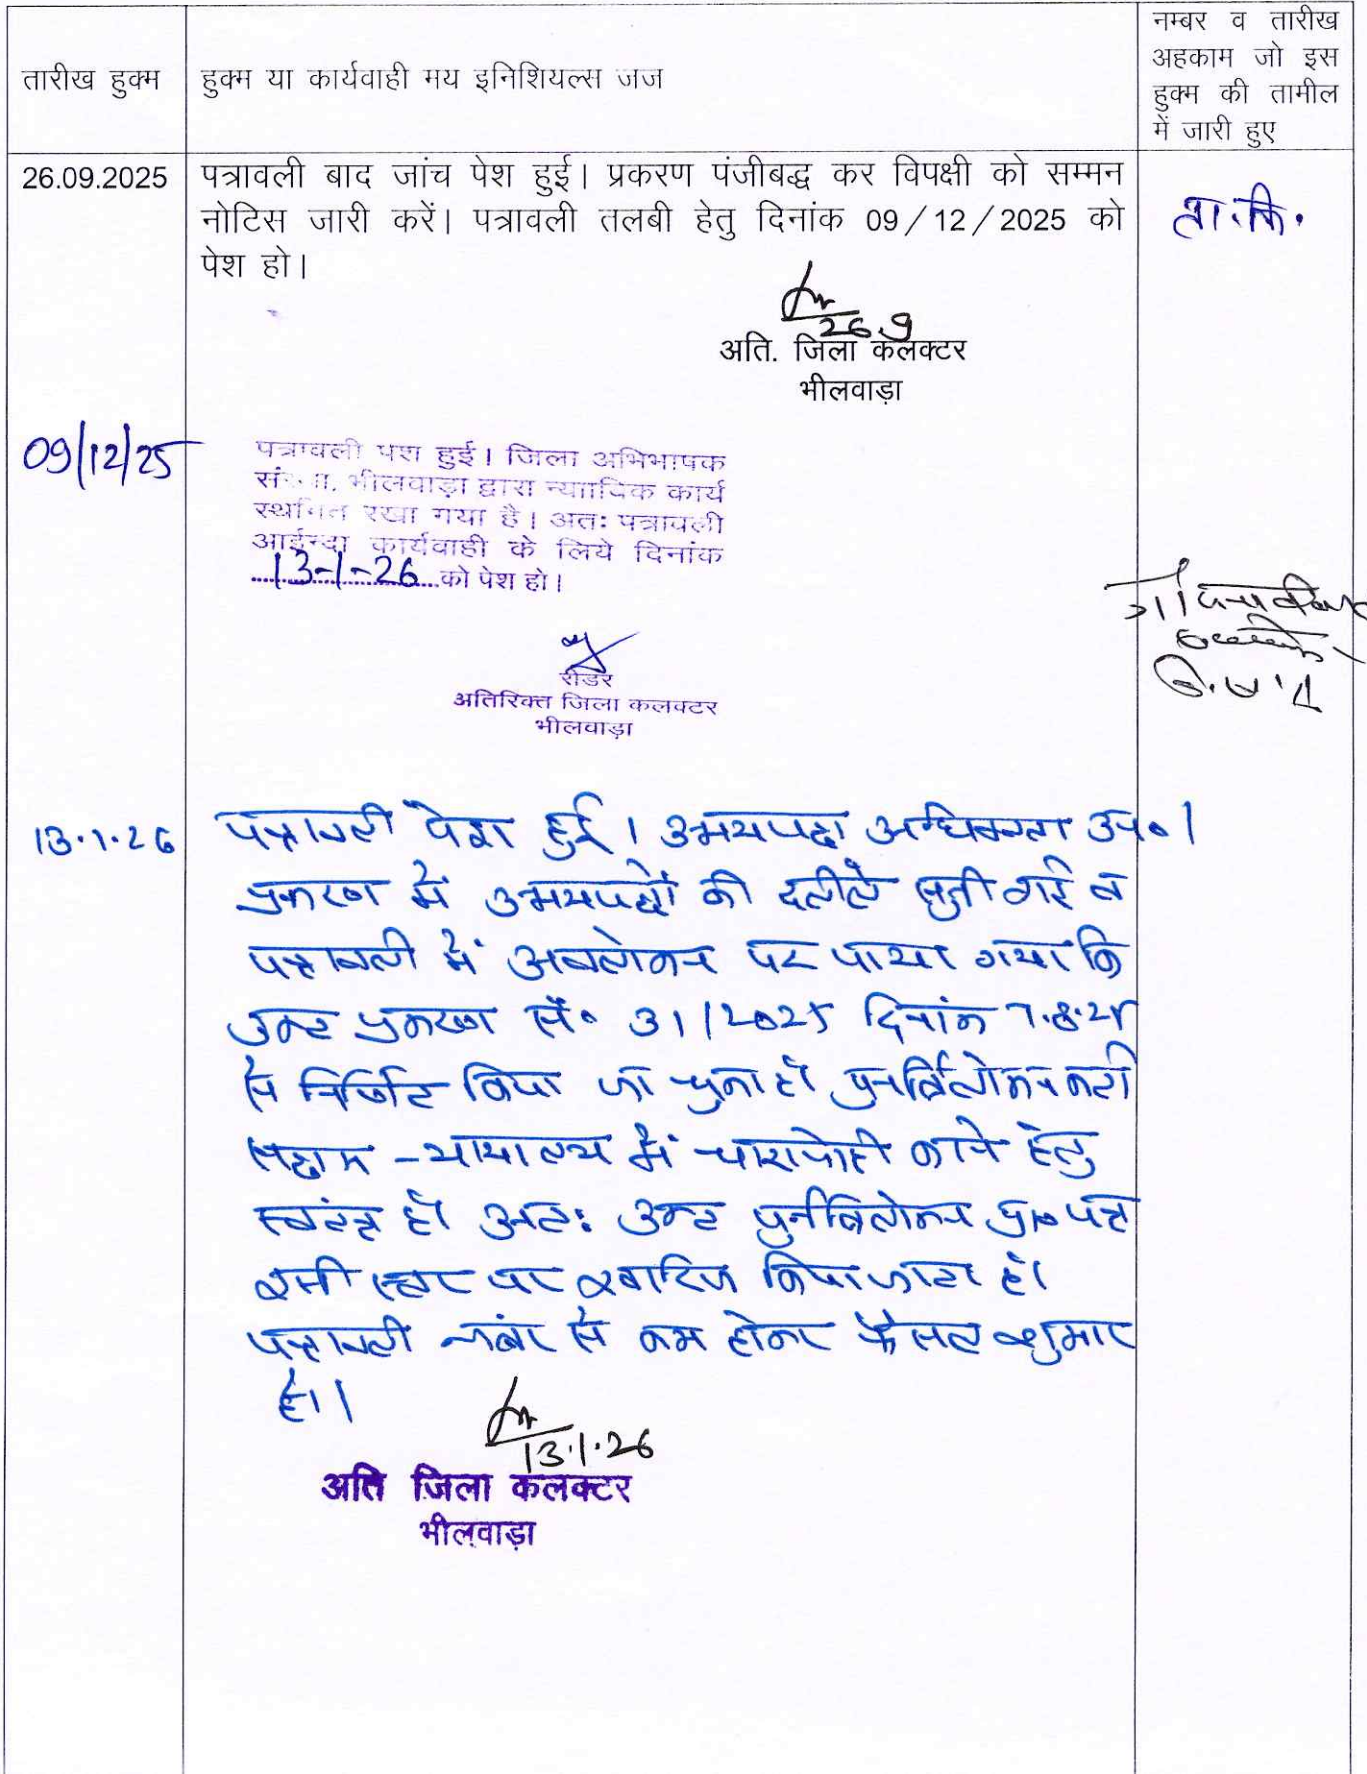 तारीख हुक्म
हुक्म या कार्यवाही मय इनिशियल्स जज
नम्बर व तारीख
अहकाम जो इस
हुक्म की तामील
में जारी हुए
26.09.2025
पत्रावली बाद जांच पेश हुई। प्रकरण पंजीबद्ध कर विपक्षी को सम्मन
नोटिस जारी करें। पत्रावली तलबी हेतु दिनांक 09/12/2025 को
पेश हो।
ता.कि.
26.9
अति. जिला कलक्टर
भीलवाड़ा
09/12/25
पत्रावली पेश हुई। जिला अभिभाषक
संस्था, भीलवाड़ा द्वारा न्यायिक कार्य
स्थगित रखा गया है। अतः पत्रावली
आईन्दा कार्यवाही के लिये दिनांक
13-1-26 को पेश हो।
रीडर
अतिरिक्त जिला कलक्टर
भीलवाड़ा
13.1.26
पत्रावली पेश हुई। उभयपक्ष अधिवक्ता उप०।
प्रकरण में उभयपक्षों की दलीलें सुनी गई व
पत्रावली में अवलोकन पर पाया गया कि
उक्त प्रकरण सं० 31/2025 दिनांक 7.8.25
से निर्णित किया जा चुका है। पुनर्विलोकन कर्ता
सक्षम न्यायालय में चाराजोही करने हेतु
स्वतंत्र है। अतः उक्त पुर्नविलोकन प्रा० पत्र
इसी स्तर पर खारिज किया जाता है।
पत्रावली नंबर से कम होकर फैसल शुमार
हो।
13.1.26
अति जिला कलक्टर
भीलवाड़ा